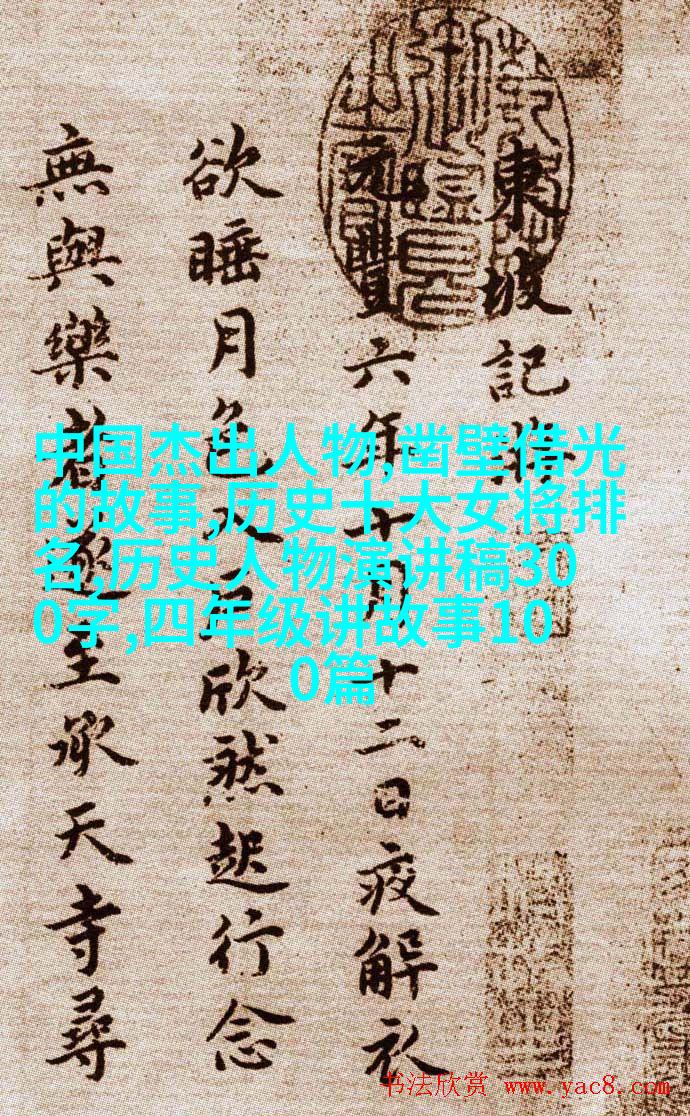 東坡記
元豐六年十月十二日夜解衣
欲睡月色入戶欣然起行念
無與樂者遂至承天寺尋
中国杰出人物,凿壁借光
的故事,历史十大女将排
名,历史人物演讲稿30
0字,四年级讲故事10
0篇
书法欣赏 www.yac8.com